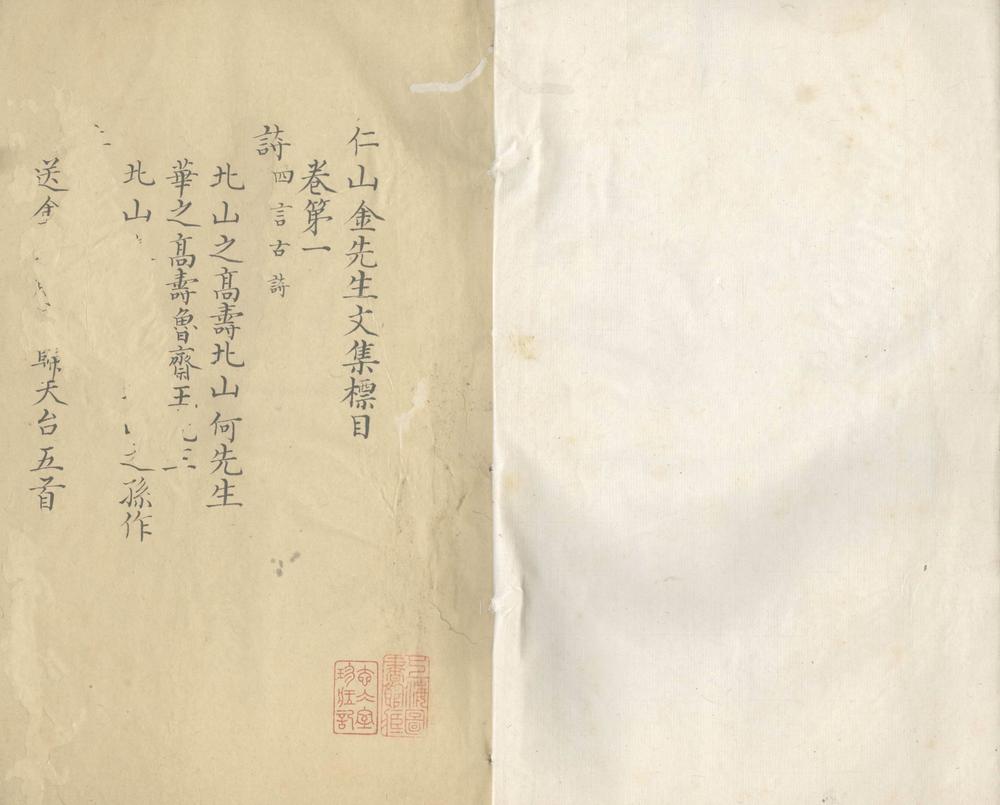 仁山金先生文集標目
卷第一
詩四言古詩
北山之髙壽北山何先生
華之髙壽魯齋王
北山 之孫作
送金 歸天台五首